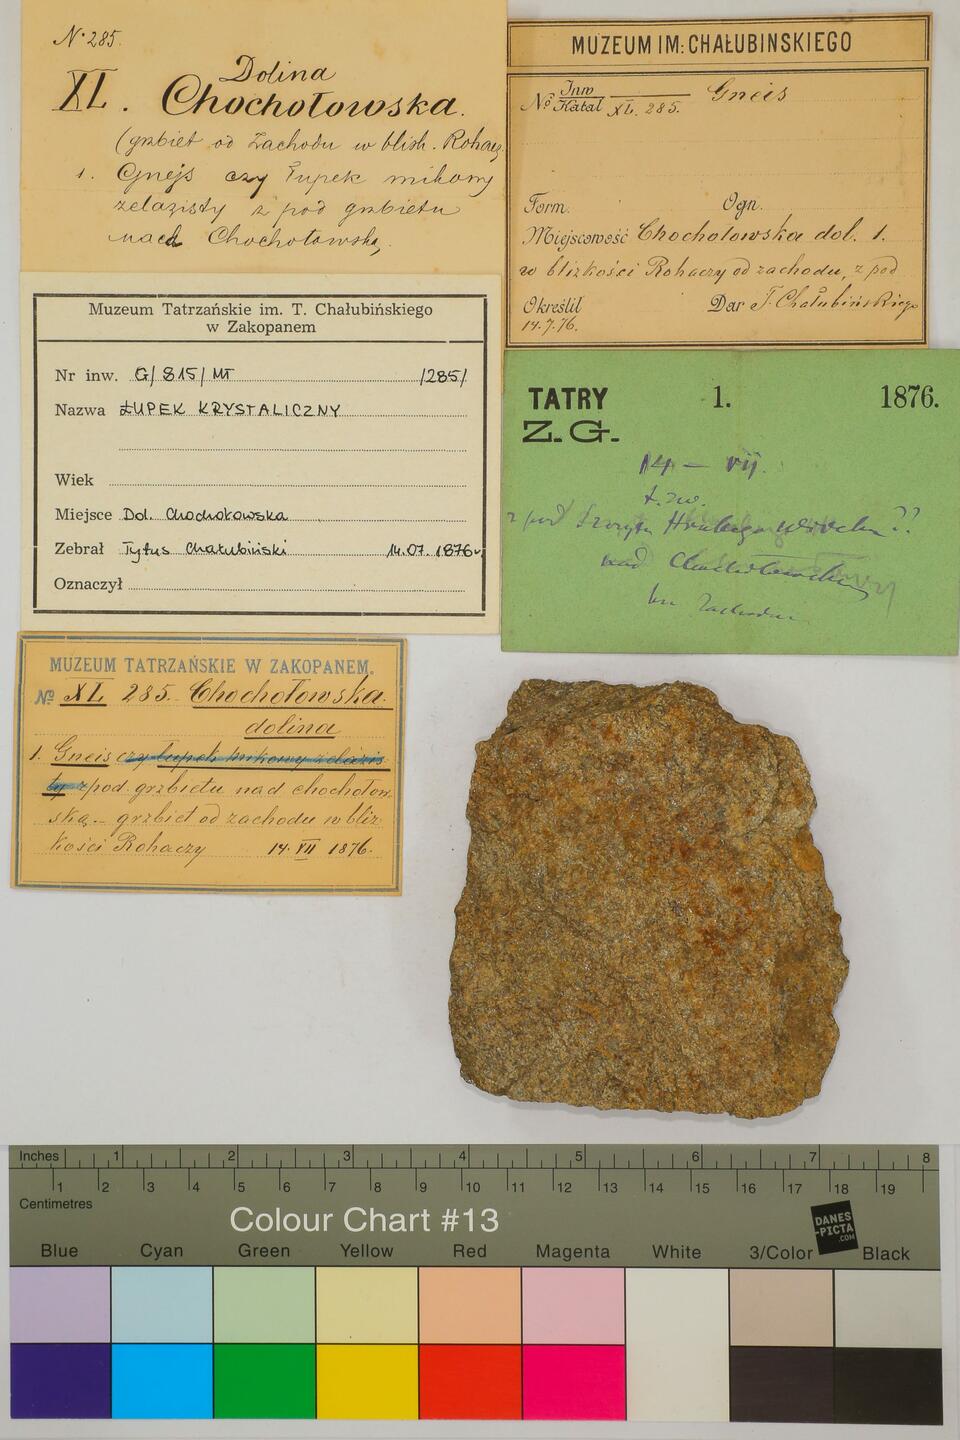 N. 285.
XL. Dolina
Chochołowska.
(grzbiet od Zachodu w blizk. Rohaczy
1. Gnejs czy Łupek mikowy
żelazisty z pod grzbietu
nad Chochołowską
MUZEUM IM: CHAŁUBINSKIEGO
No Inw Katal XL. 285. Gneis
Form. Ogn.
Miejscowość Chochołowska dol. 1.
w blizkości Rohaczy od zachodu, z pod
Określił Dar T. Chałubińskiego
14.7.76.
Muzeum Tatrzańskie im. T. Chałubińskiego
w Zakopanem
Nr inw. G/815/MT /285/
Nazwa ŁUPEK KRYSTALICZNY
Wiek
Miejsce Dol. Chochołowska
Zebrał Tytus Chałubiński 14.07.1876r.
Oznaczył
TATRY 1. 1876.
Z. G.
14 – VII.
t. zw.
z pod Szczytu ??
nad Chochołowską
ku Zachodowi
MUZEUM TATRZAŃSKIE W ZAKOPANEM.
No XL 285. Chochołowska
dolina
1. Gneis czy łupek mikowy żelazis
ty z pod grzbietu nad chochołow
ską – grzbiet od zachodu w bliz
kości Rohaczy 14. VII 1876.
Inches 1 2 3 4 5 6 7 8
1 2 3 4 5 6 7 8 9 10 11 12 13 14 15 16 17 18 19
Centimetres
Colour Chart #13
DANES
-PICTA
.COM
Blue Cyan Green Yellow Red Magenta White 3/Color Black